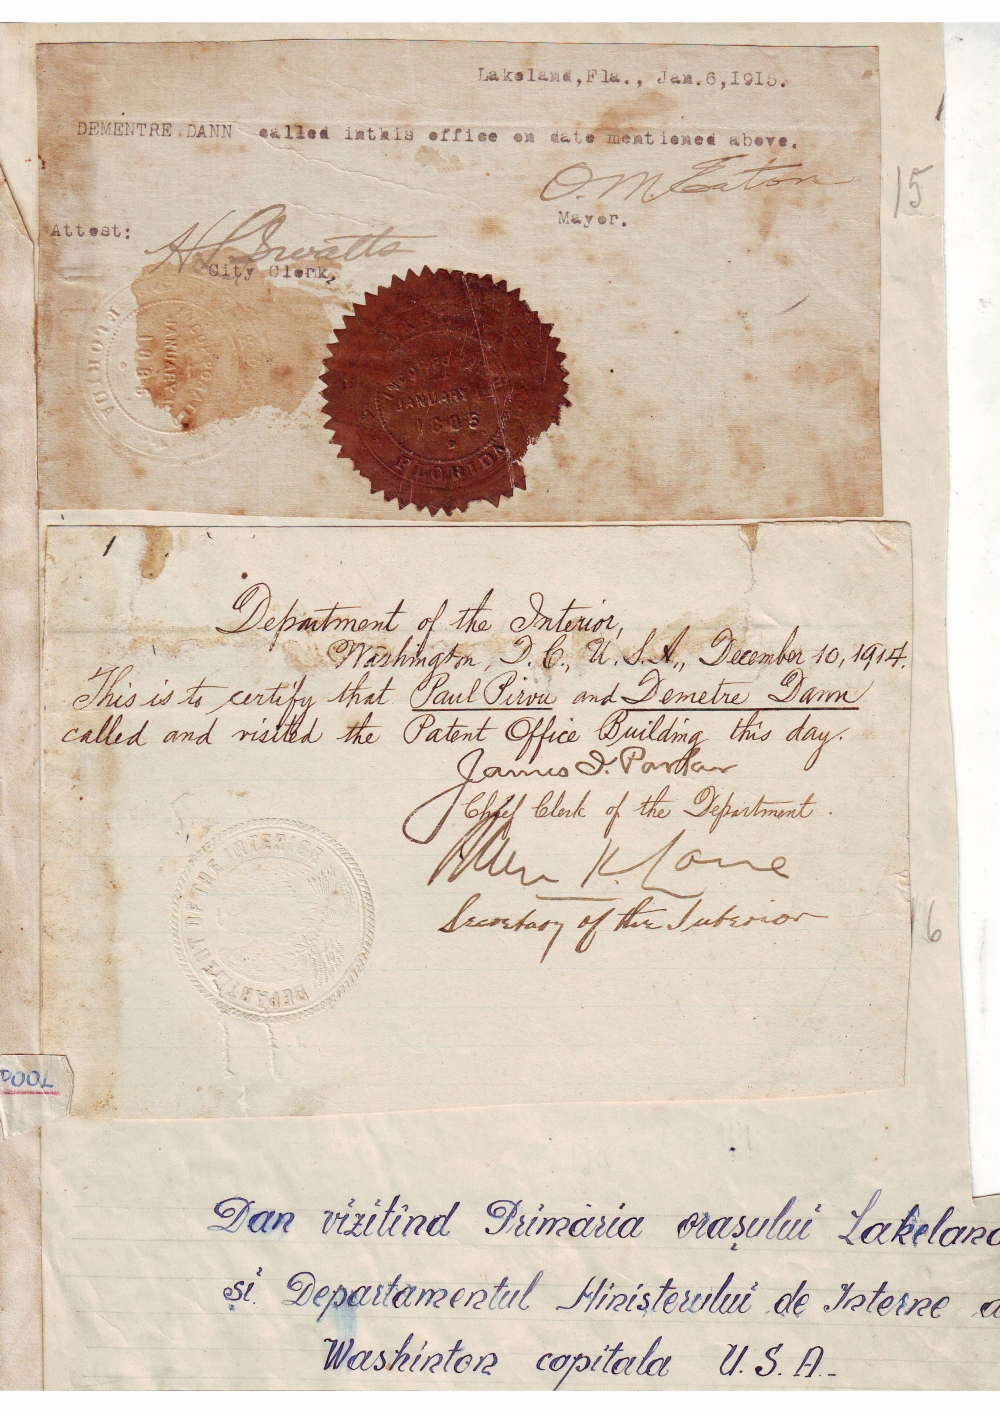 Lakeland,Fla., Jan.6,1915.
DEMENTRE.DANN called inthis office on date mentioned above.
O. M. Eaton
Mayor.
Attest:
City Clerk,
INCORPORATED
JANUARY 1
1885
FLORIDA
FLORIDA
JANUARY
1885
15
Department of the Interior,
Washington, D. C., U. S. A., December 10, 1914.
This is to certify that Paul Pirvu and Demetre Dann
called and visited the Patent Office Building this day.
James I. Parker
Chief Clerk of the Department.
Secretary of the Interior
DEPARTMENT OF THE INTERIOR
16
POOL
Dan vizitînd Primăria orașului Lakeland
și Departamentul Ministerului de Interne a
Washinton capitala U. S. A.-